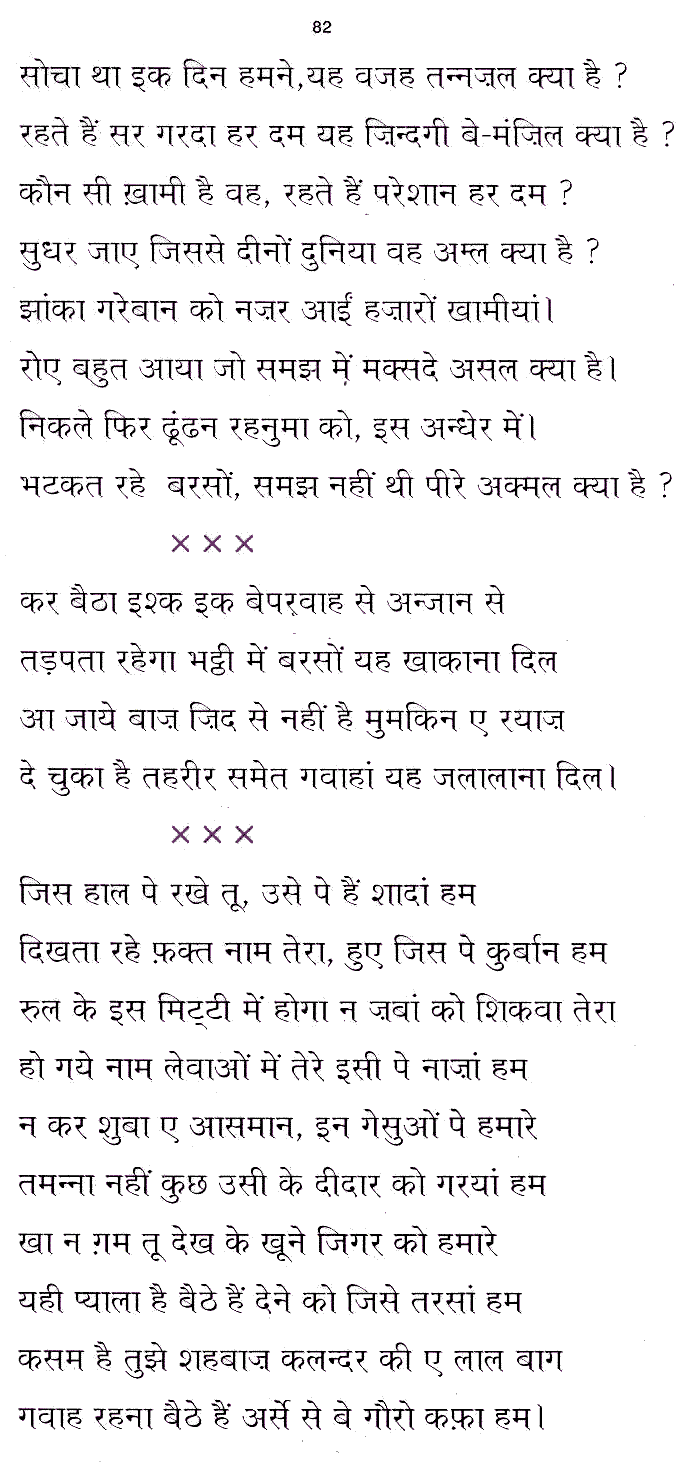 82
सोचा था इक दिन हमने,यह वजह तन्नज़ल क्या है ?
रहते हैं सर गरदा हर दम यह ज़िन्दगी बे-मंज़िल क्या है ?
कौन सी ख़ामी है वह, रहते हैं परेशान हर दम ?
सुधर जाए जिससे दीनों दुनिया वह अम्ल क्या है ?
झांका गरेबान को नज़र आईं हज़ारों खामीयां।
रोए बहुत आया जो समझ में मक्सदे असल क्या है।
निकले फिर ढूंढन रहनुमा को, इस अन्धेर में।
भटकत रहे बरसों, समझ नहीं थी पीरे अक्मल क्या है ?
× × ×
कर बैठा इश्क इक बेपरवाह से अन्जान से
तड़पता रहेगा भट्ठी में बरसों यह खाकाना दिल
आ जाये बाज़ ज़िद से नहीं है मुमकिन ए रयाज़
दे चुका है तहरीर समेत गवाहां यह जलालाना दिल।
× × ×
जिस हाल पे रखे तू, उसे पे हैं शादां हम
दिखता रहे फ़क्त नाम तेरा, हुए जिस पे कुर्बान हम
रुल के इस मिट्टी में होगा न ज़बां को शिकवा तेरा
हो गये नाम लेवाओं में तेरे इसी पे नाज़ां हम
न कर शुबा ए आसमान, इन गेसुओं पे हमारे
तमन्ना नहीं कुछ उसी के दीदार को गरयां हम
खा न ग़म तू देख के खूने जिगर को हमारे
यही प्याला है बैठे हैं देने को जिसे तरसां हम
कसम है तुझे शहबाज़ कलन्दर की ए लाल बाग
गवाह रहना बैठे हैं अर्से से बे गौरो कफ़ा हम।